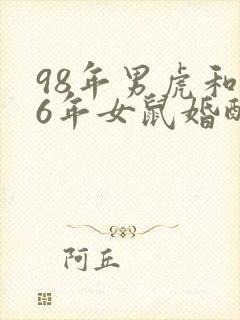 98年男虎和
6年女鼠婚配
阿丘